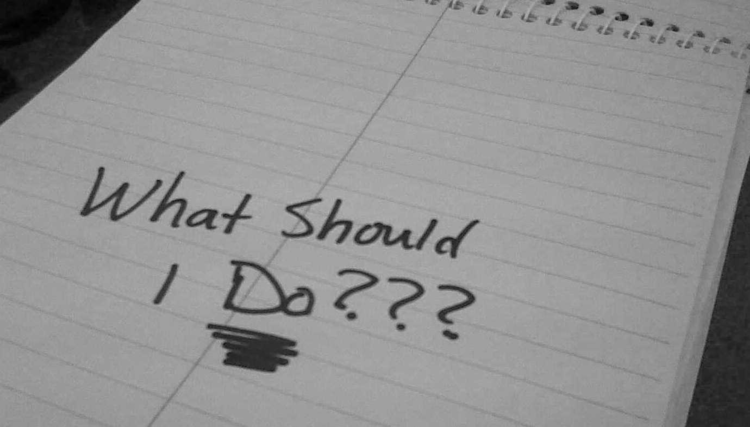 What Should
I Do???